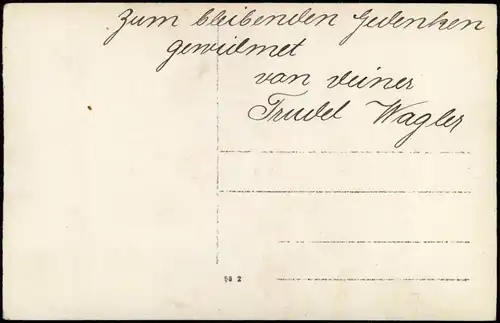 Zum bleibenden Gedenken
gewidmet
von deiner
Trudel Wagler
58 2